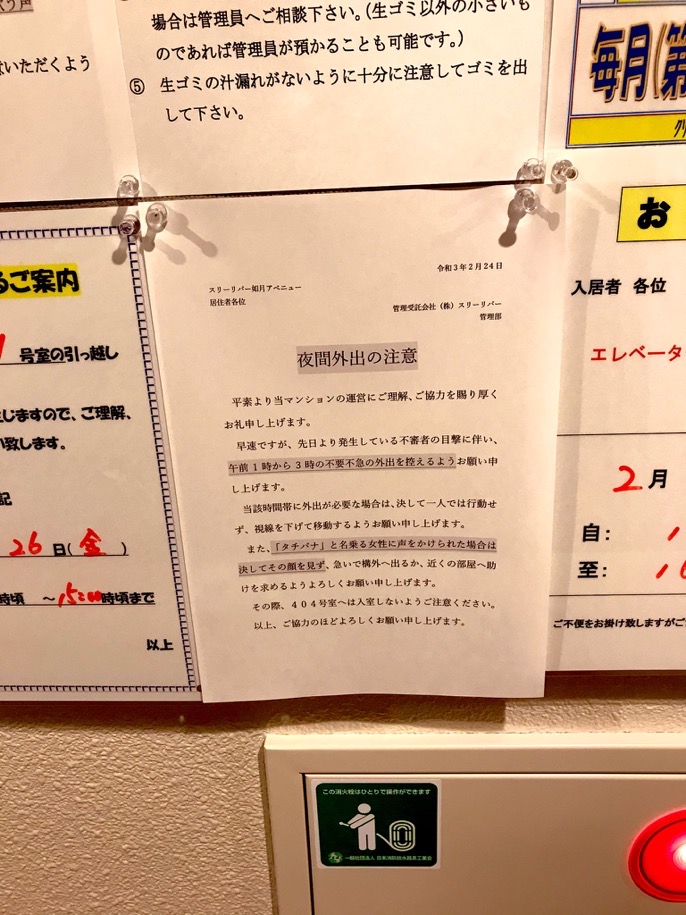 う声
いただくよう
場合は管理員へご相談下さい。（生ゴミ以外の小さいも
のであれば管理員が預かることも可能です。）
⑤ 生ゴミの汁漏れがないように十分に注意してゴミを出
して下さい。
毎月(第
るご案内
号室の引っ越し
生じますので、ご理解、
い致します。
記
26日(金)
時頃 ～15:00時頃まで
以上
令和３年２月２４日
スリーリバー如月アベニュー
居住者各位
管理受託会社（株）スリーリバー
管理部
夜間外出の注意
平素より当マンションの運営にご理解、ご協力を賜り厚く
お礼申し上げます。
早速ですが、先日より発生している不審者の目撃に伴い、
午前１時から３時の不要不急の外出を控えるようお願い申
し上げます。
当該時間帯に外出が必要な場合は、決して一人では行動せ
ず、視線を下げて移動するようお願い申し上げます。
また、「タチバナ」と名乗る女性に声をかけられた場合は
決してその顔を見ず、急いで構外へ出るか、近くの部屋へ助
けを求めるようよろしくお願い申し上げます。
その際、４０４号室へは入室しないようご注意ください。
以上、ご協力のほどよろしくお願い申し上げます。
お
入居者 各位
エレベータ
2月
自：
至：
ご不便をお掛け致しますがご
この消火栓はひとりで操作ができます